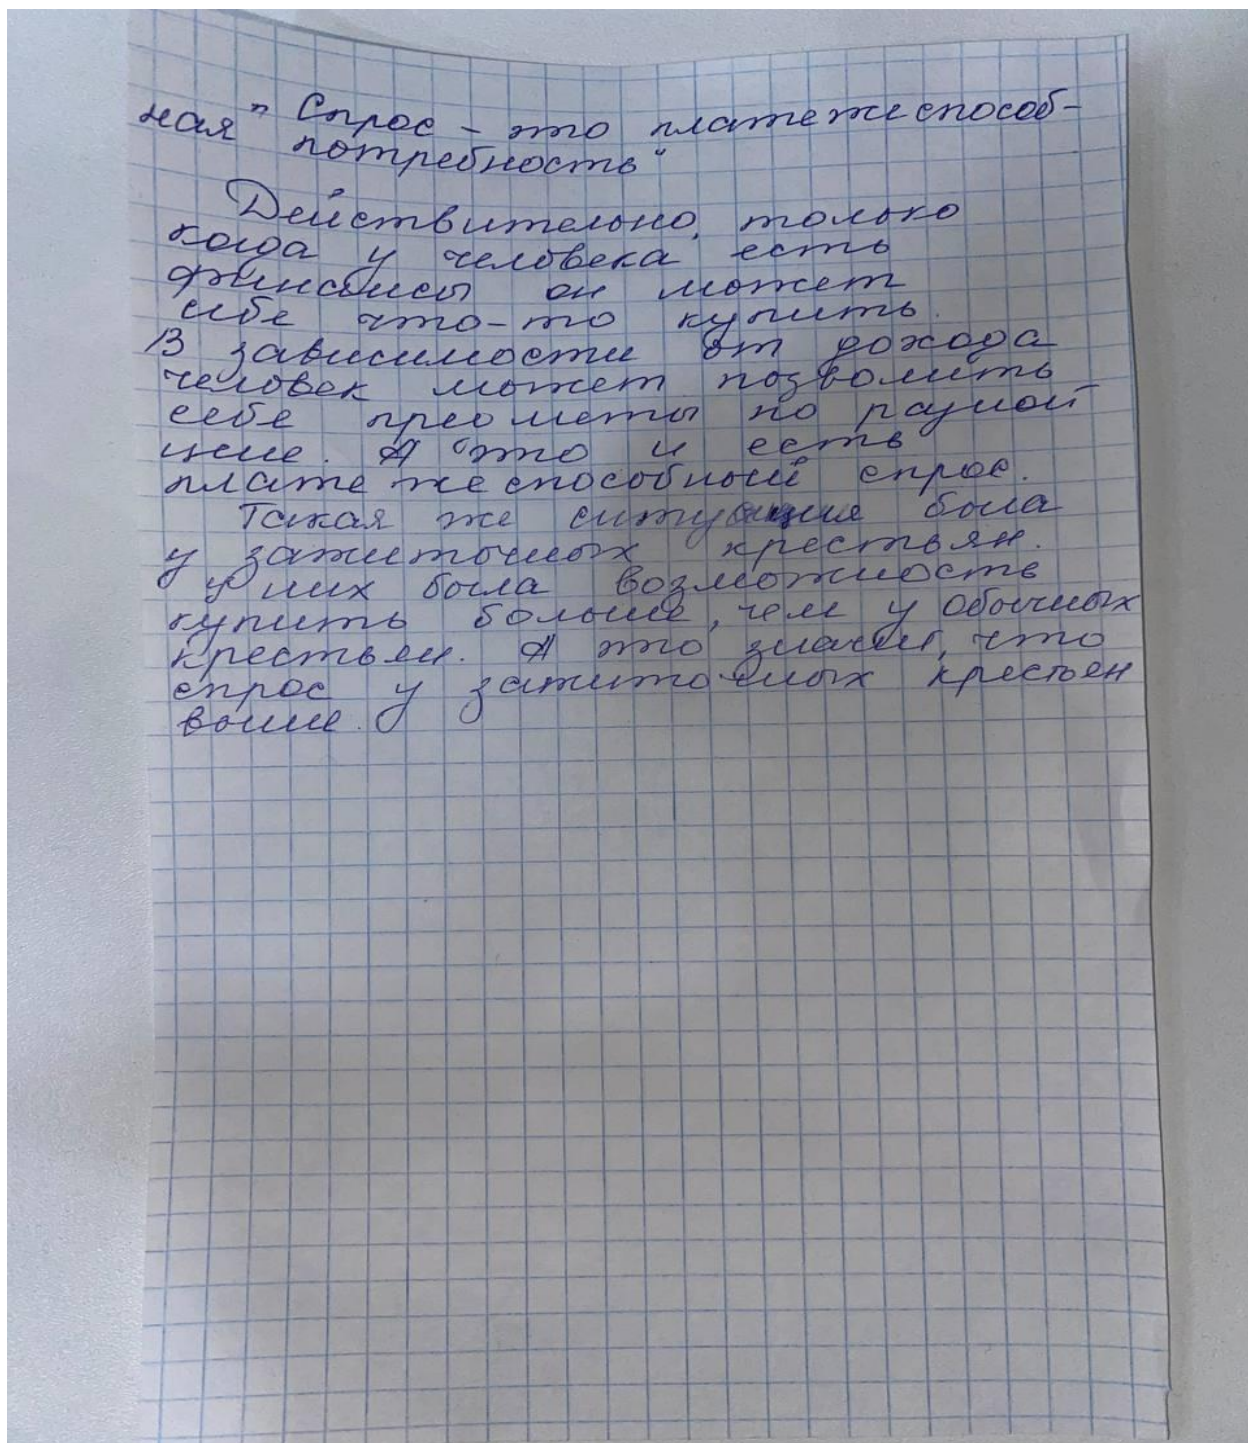 " Спрос – это платежеспособ-
ная потребность"
Действительно, только
когда у человека есть
финансы он может
себе что-то купить.
В зависимости от дохода
человек может позволить
себе предметы по разной
цене. А это и есть
платежеспособный спрос.
Такая же ситуация была
у зажиточных крестьян.
У них была возможность
купить больше, чем у обычных
крестьян. А это значит, что
спрос у зажиточных крестьен
выше.